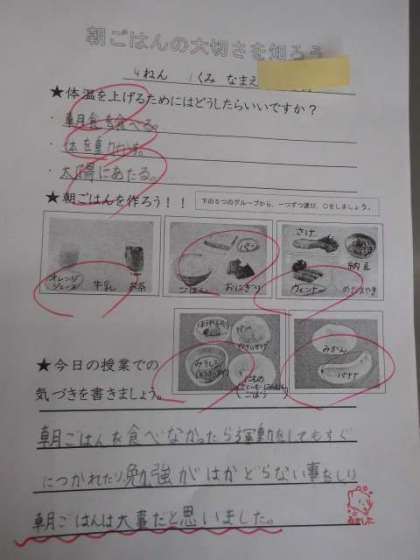 朝ごはんの大切さを知ろう
4ねん 1くみ なまえ
★体温を上げるためにはどうしたらいいですか？
・朝食を食べる。
・体を動かす。
・太陽にあたる。
★朝ごはんを作ろう！！
下の5つのグループから、一つずつ選び、○をしましょう。
オレンジジュース 牛乳 お茶
ごはん パン おにぎり
さけ 納豆 ウィンナー めだまやき
みそしる
みかん バナナ
★今日の授業での
気づきを書きましょう。
朝ごはんを食べなかったら運動をしてもすぐ
につかれたり、勉強がはかどらない事をしり
朝ごはんは大事だと思いました。